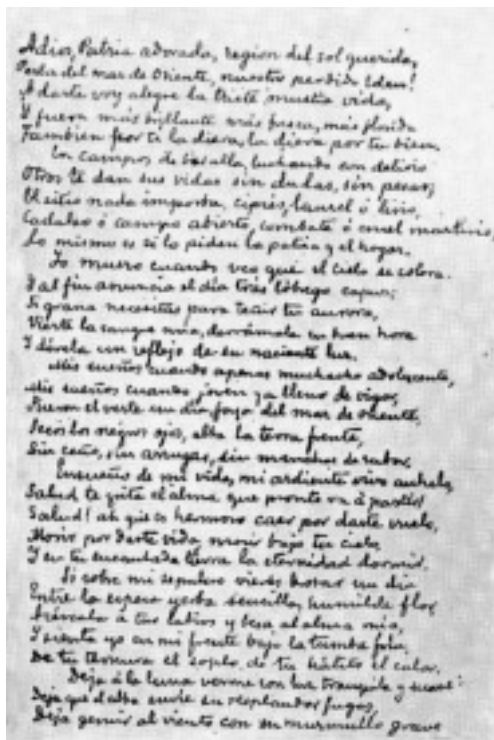 Adios, Patria adorada, region del sol querida,
Perla del mar de Oriente, nuestro perdido Eden!
A darte voy alegre la triste mustia vida,
Y fuera más brillante más fresca, más florida
Tambien por ti la diera, la diera por tu bien.
En campos de batalla, luchando con delirio
Otros te dan sus vidas sin dudas, sin pesar;
El sitio nada importa, ciprés, laurel ó lirio,
Cadalso ó campo abierto, combate ó cruel martirio,
Lo mismo es si lo piden la patria y el hogar.
Yo muero cuando veo que el cielo se colora
Y al fin anuncia el día tras lóbrego capuz;
Si grana necesitas para teñir tu aurora,
Vierte la sangre mia, derrámala en buen hora
Y dórela un reflejo de su naciente luz.
Mis sueños cuando apenas muchacho adolescente,
Mis sueños cuando joven ya lleno de vigor,
Fueron el verte un día, joya del mar de oriente,
Secos los negros ojos, alta la tersa frente,
Sin ceño, sin arrugas, sin manchas de rubor.
Ensueño de mi vida, mi ardiente vivo anhelo,
Salud te grita el alma que pronto va á partir!
Salud! ah que es hermoso caer por darte vuelo,
Morir por darte vida, morir bajo tu cielo,
Y en tu encantada tierra la eternidad dormir.
Si sobre mi sepulcro vieres brotar un dia
Entre la espesa yerba sencilla, humilde flor,
Acércala á tus labios y besa al alma mia,
Y sienta yo en mi frente bajo la tumba fria
De tu ternura el soplo, de tu hálito el calor.
Deja á la luna verme con luz tranquila y suave:
Deja que el alba envie su resplandor fugaz,
Deja gemir al viento con su murmullo grave